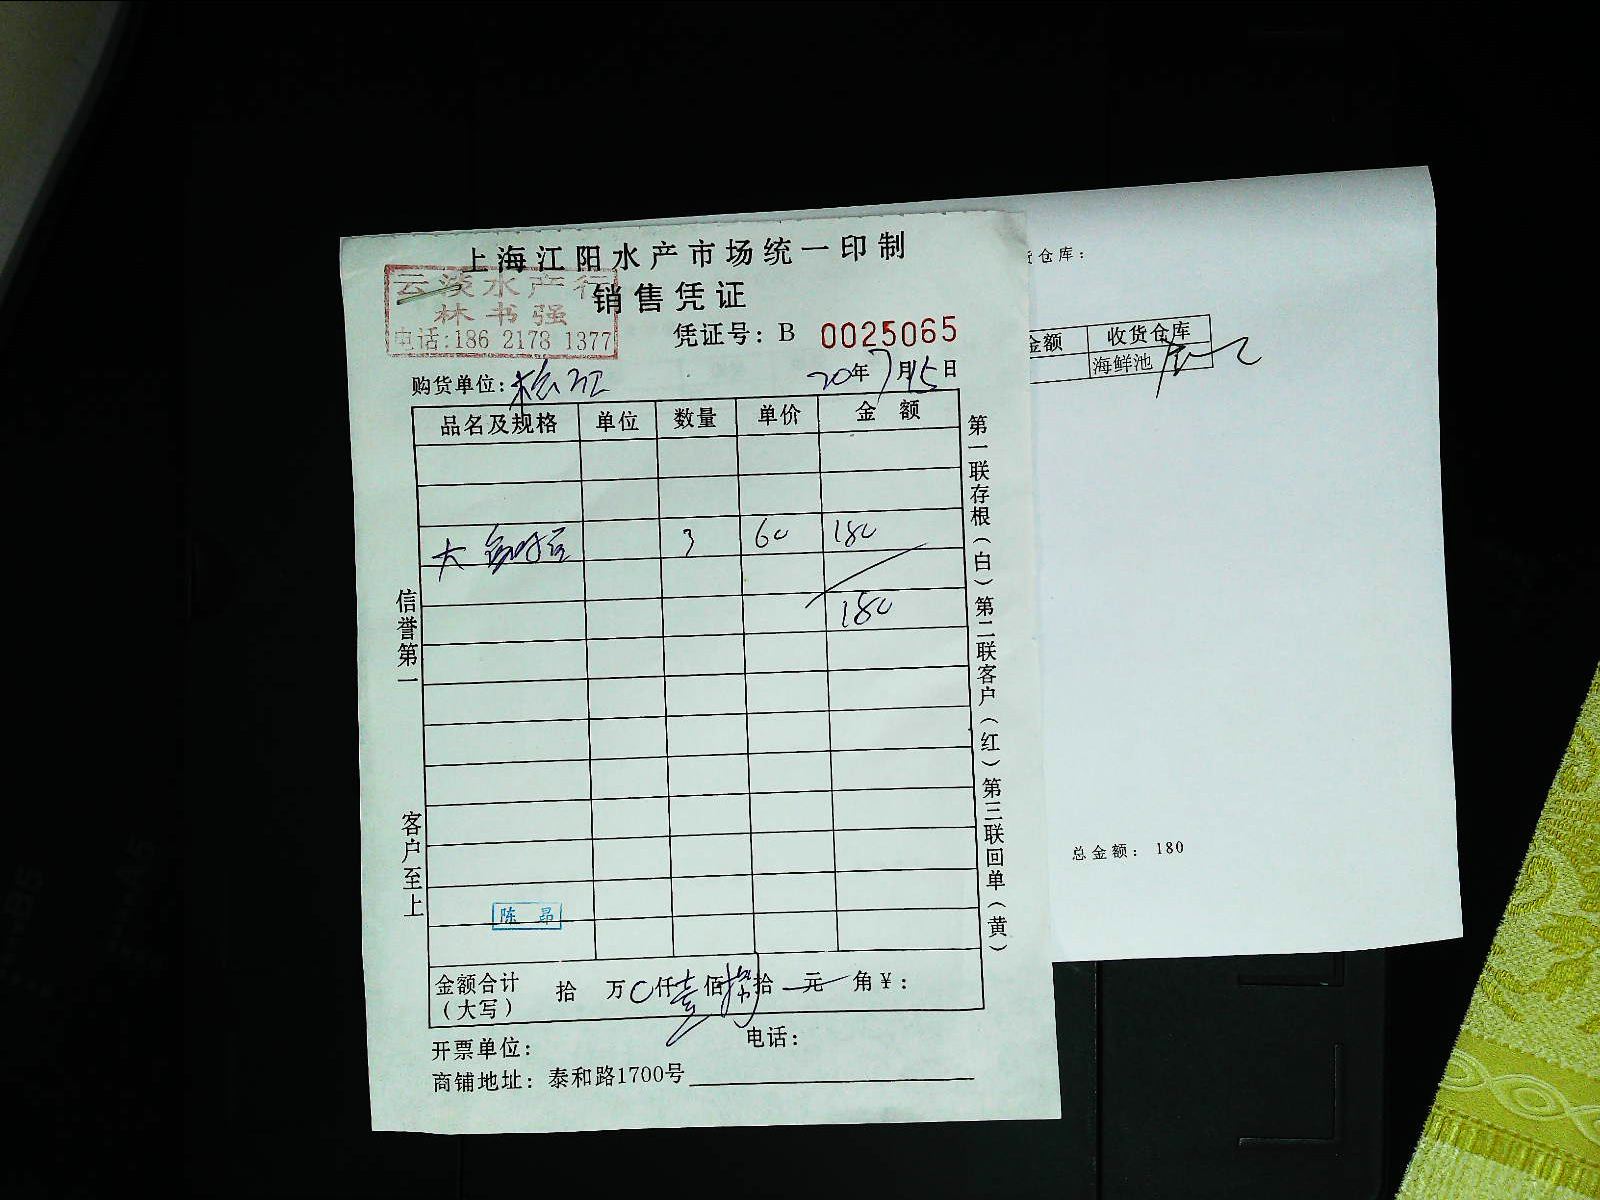 上海江阳水产市场统一印制
云淡水产行
林书强
电话:186 2178 1377
销售凭证
凭证号: B 0025065
购货单位:
20年7月15日
品名及规格 单位 数量 单价 金额
大 3 60 180
180
信誉第一
客户至上
第一联存根(白)第二联客户(红)第三联回单(黄)
陈昂
金额合计(大写) 拾 万 0仟壹佰捌拾元 角¥:
开票单位: 电话:
商铺地址: 泰和路1700号
仓库:
金额 收货仓库
海鲜池
总金额: 180